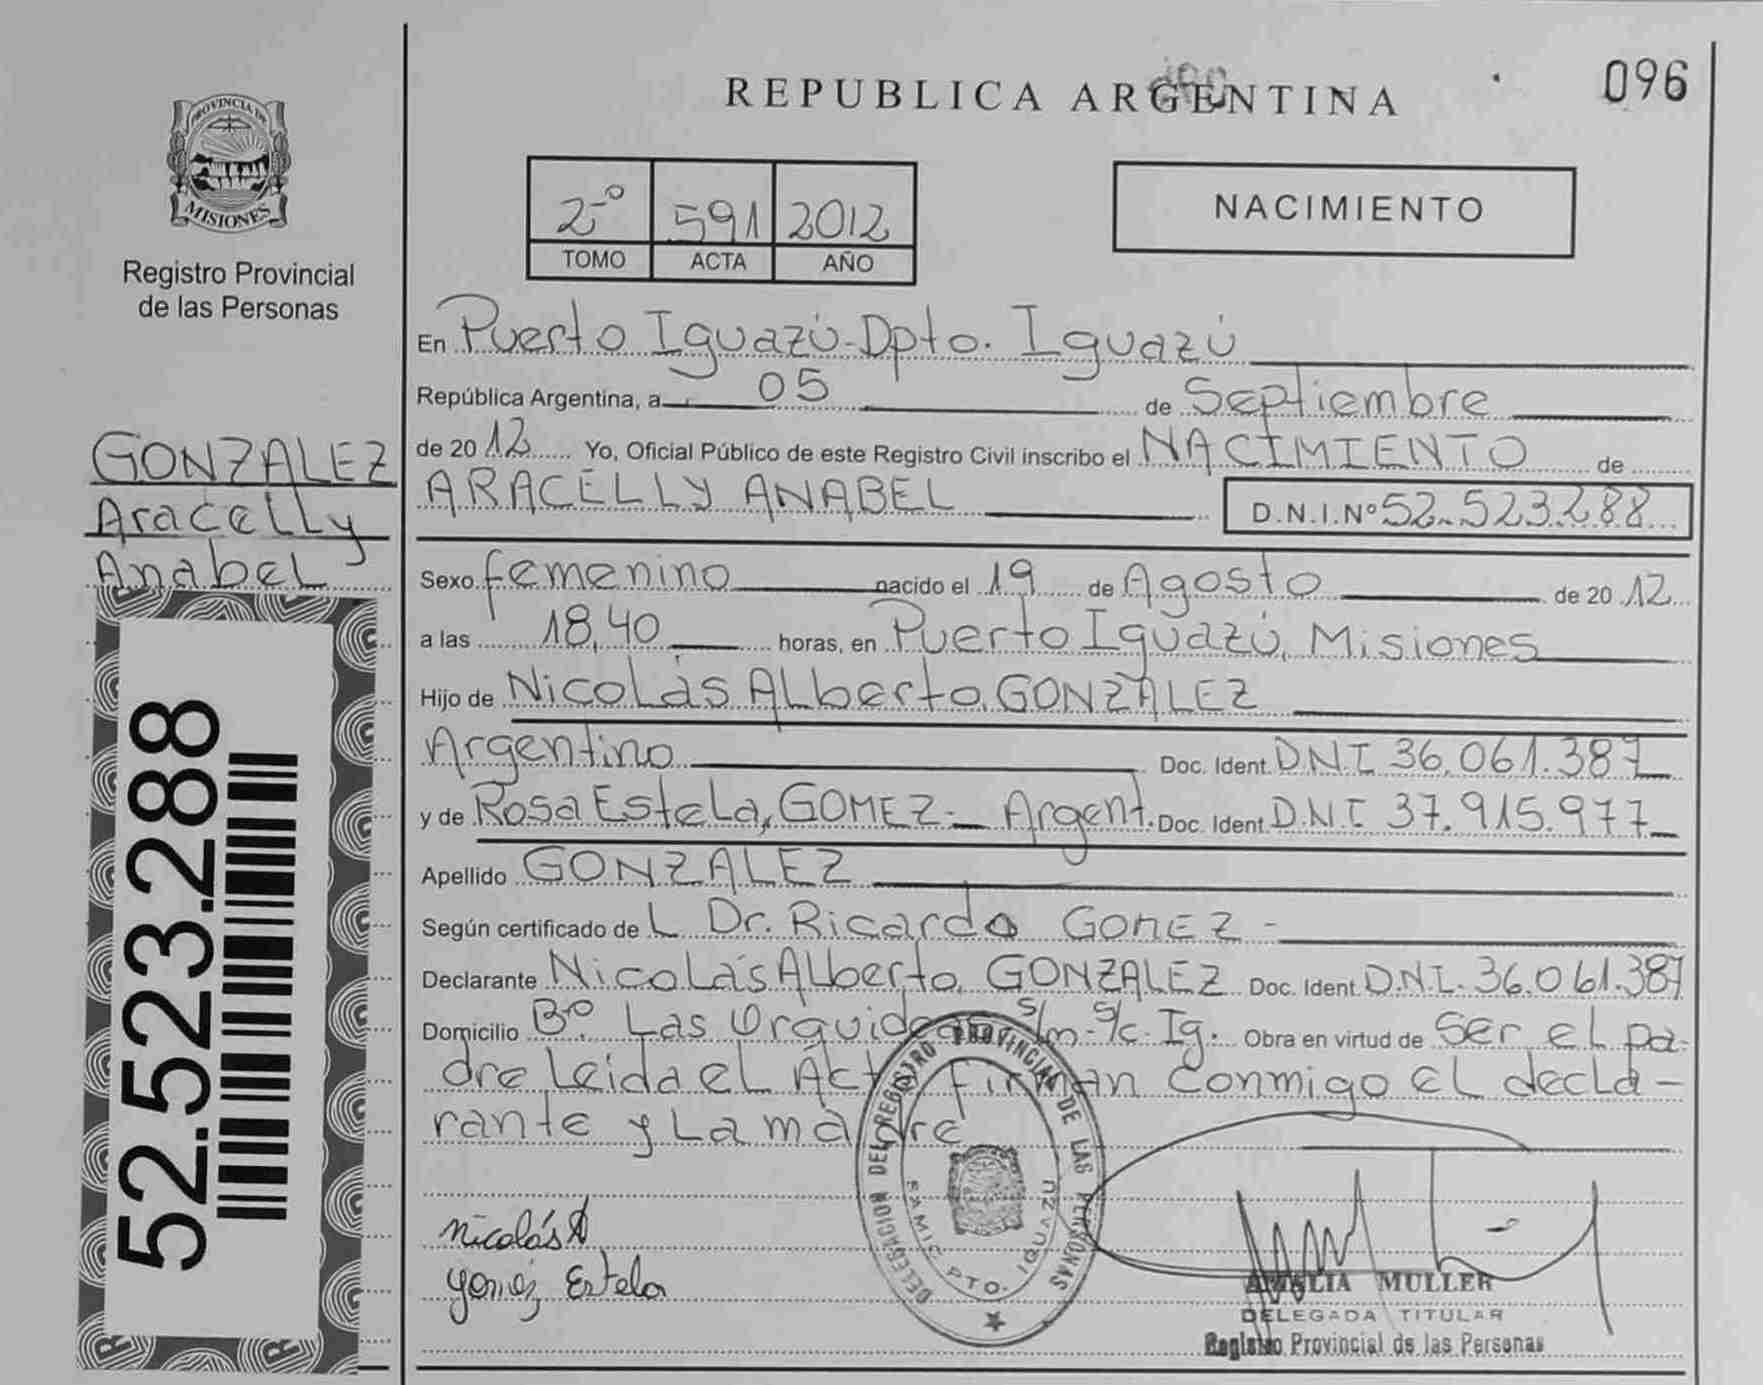 096
REPUBLICA ARGENTINA
PROVINCIA DE
MISIONES
Registro Provincial
de las Personas
2º 591 2012
TOMO ACTA AÑO
NACIMIENTO
GONZALEZ
Aracelly
Anabel
52.523.288
En Puerto Iguazú-Dpto. Iguazú
República Argentina, a 05 de Septiembre
de 2012 Yo, Oficial Público de este Registro Civil inscribo el NACIMIENTO de
ARACELLY ANABEL D.N.I.Nº 52.523.288
Sexo femenino nacido el 19 de Agosto de 2012
a las 18,40 horas, en Puerto Iguazú, Misiones
Hijo de Nicolás Alberto, GONZALEZ
Argentino Doc. Ident. DNI 36.061.387
y de Rosa Estela, GOMEZ- Argent. Doc. Ident. D.N.I 37.915.977
Apellido GONZALEZ
Según certificado de L Dr. Ricardo GOMEZ -
Declarante Nicolás Alberto, GONZALEZ Doc. Ident. D.N.I. 36.061.387
Domicilio Bº. Las Orquideas s/n- s/c- Ig. Obra en virtud de Ser el pa-
dre Leida el Acta Firman conmigo el decla-
rante y La madre
Nicolás A
Gomez Estela
DELEGACION DEL REGISTRO PROVINCIAL DE LAS PERSONAS
SAMIC PTO. IGUAZU
AMALIA MULLER
DELEGADA TITULAR
Registro Provincial de las Personas